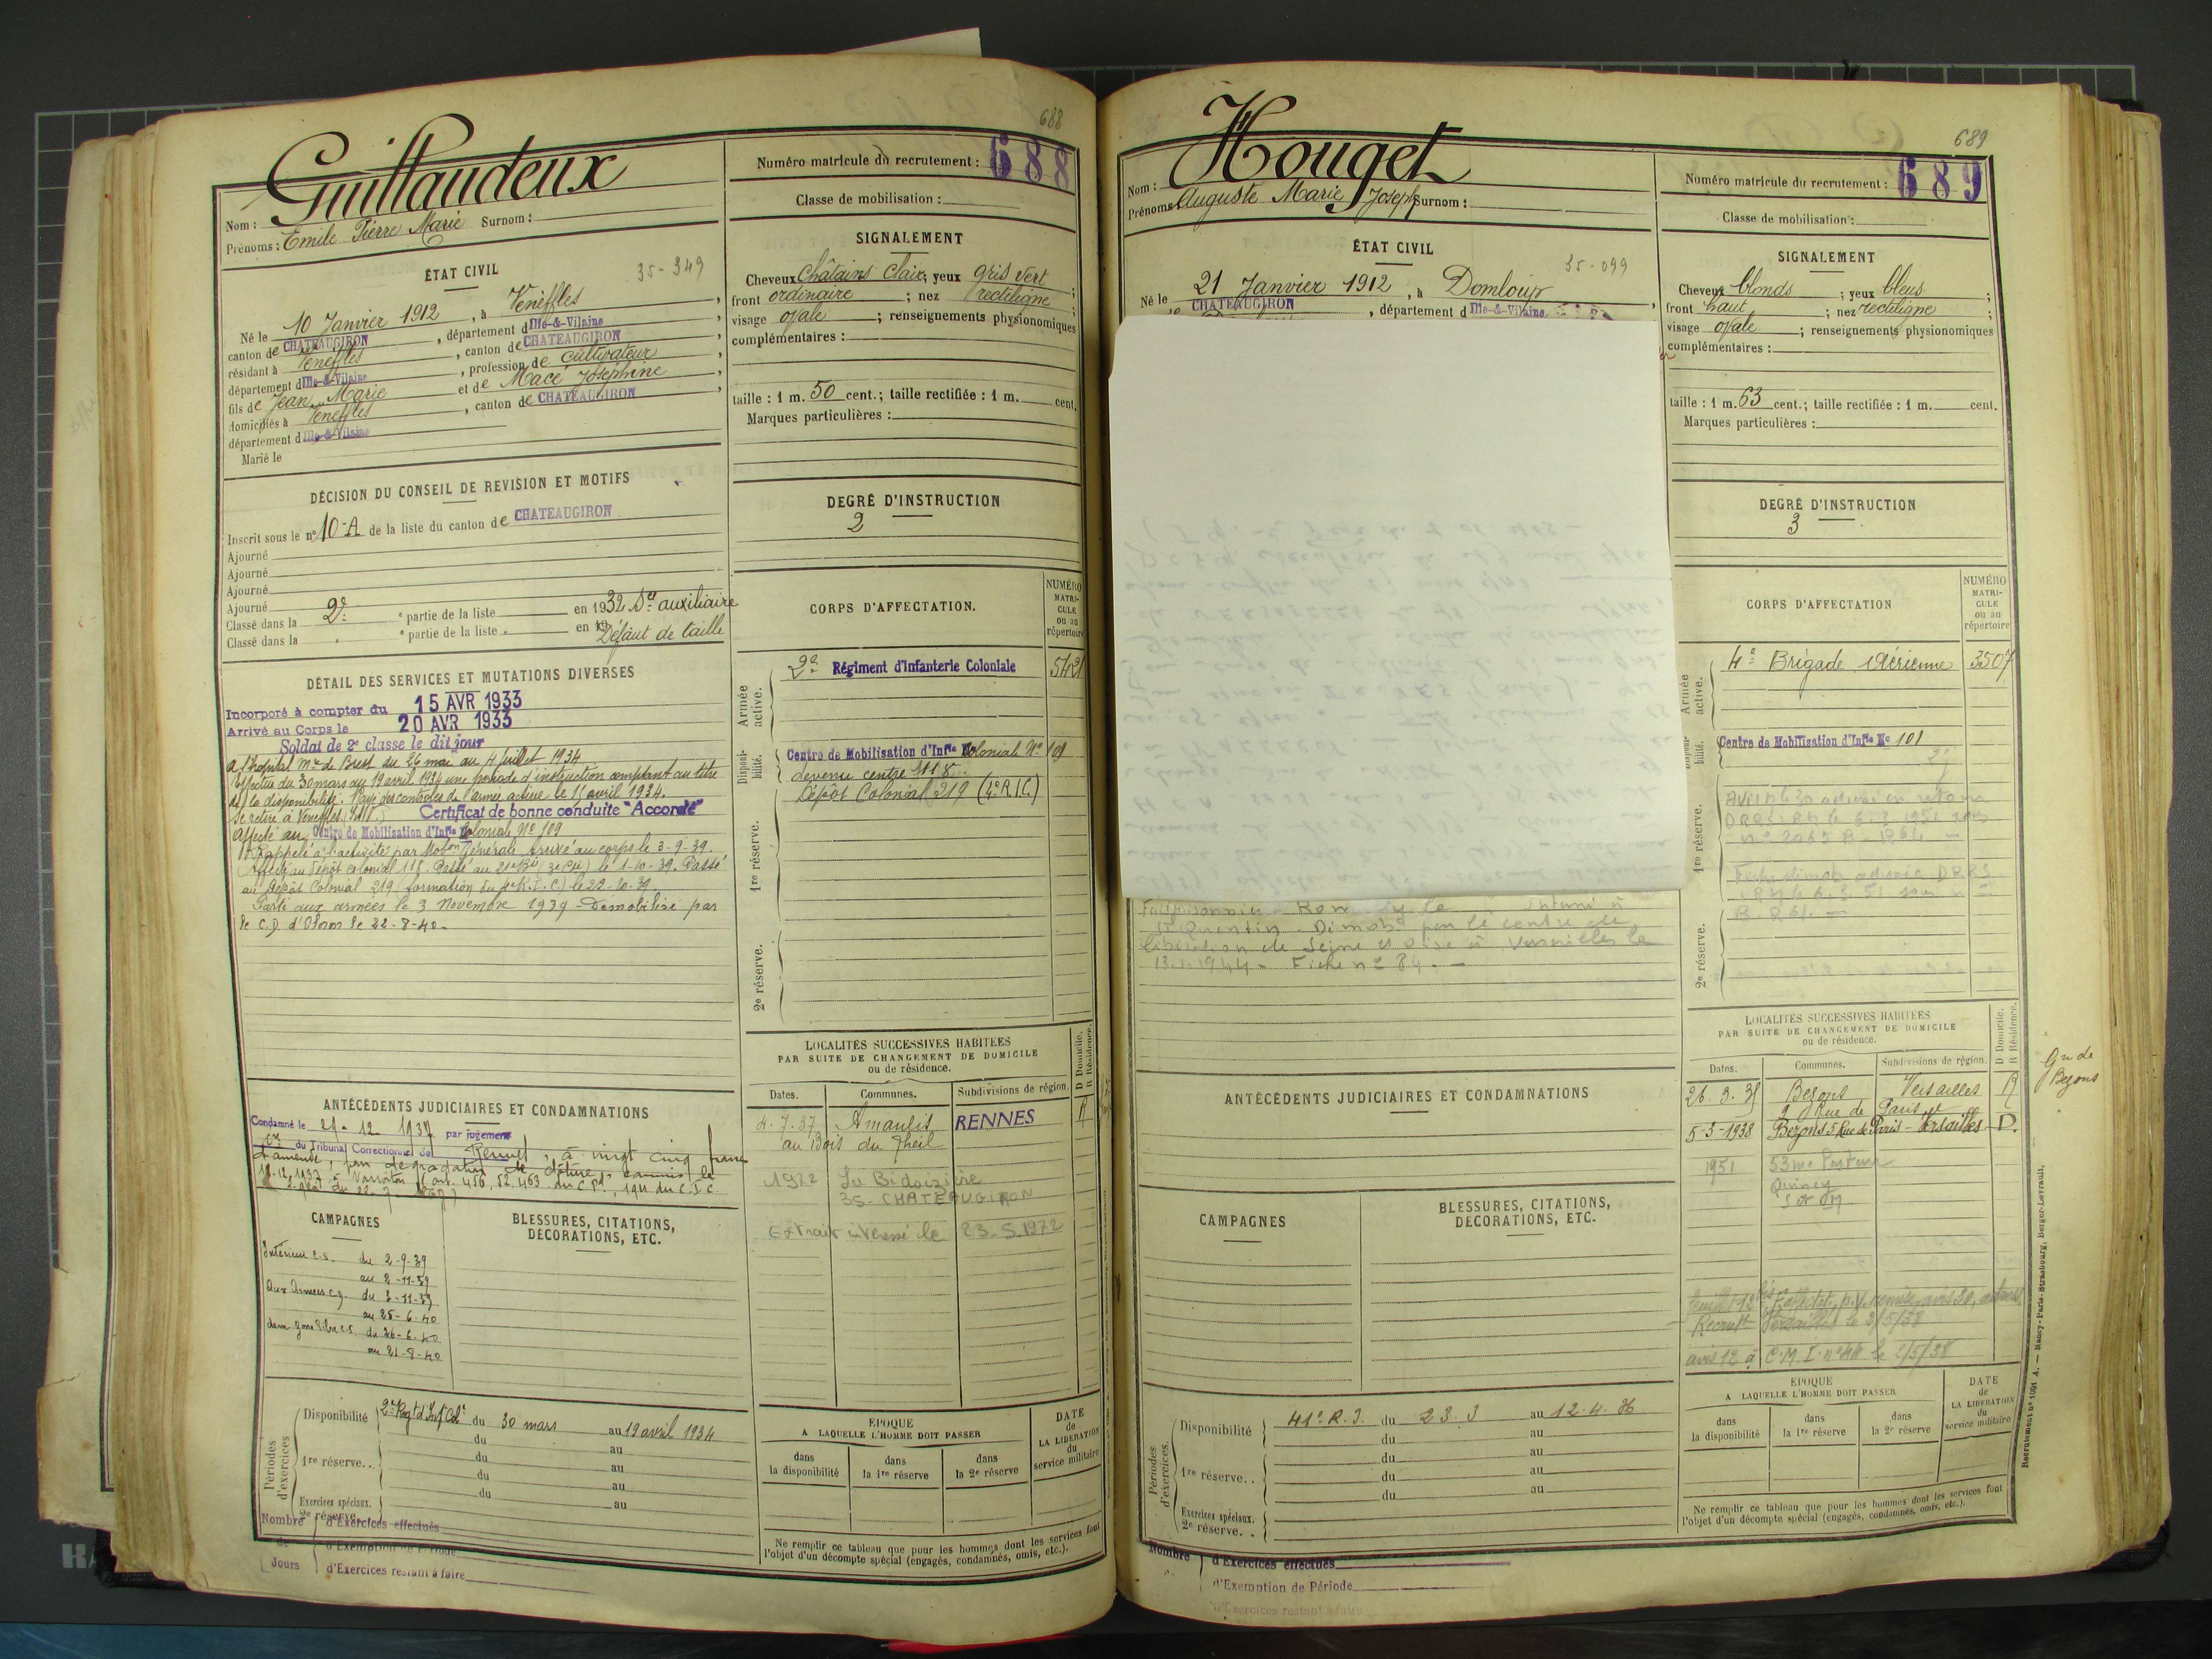 688
Guillaudeux
Nom :
Prénoms : Emile Pierre Marie Surnom :
Numéro matricule du recrutement : 688
Classe de mobilisation :
ÉTAT CIVIL
35-349
Né le 10 Janvier 1912, à Venèffles,
canton de CHATEAUGIRON, département d Ille-&-Vilaine,
résidant à Venèffles, canton de CHATEAUGIRON,
département d Ille-&-Vilaine, profession de cultivateur,
fils de Jean Marie et de Macé Joséphine,
domiciliés à Venèffles, canton de CHATEAUGIRON,
département d Ille-&-Vilaine
Marié le
SIGNALEMENT
Cheveux Châtains clairs; yeux gris vert;
front ordinaire; nez rectiligne;
visage ovale; renseignements physionomiques
complémentaires :
taille : 1 m. 50 cent.; taille rectifiée : 1 m. cent.
Marques particulières :
DÉCISION DU CONSEIL DE REVISION ET MOTIFS
Inscrit sous le n° 10-A de la liste du canton de CHATEAUGIRON
Ajourné
Ajourné
Ajourné
Ajourné
Classé dans la 2e ° partie de la liste en 1932 Son auxiliaire
Classé dans la ° partie de la liste en 19 Défaut de taille
DEGRÉ D'INSTRUCTION
2
DÉTAIL DES SERVICES ET MUTATIONS DIVERSES
Incorporé à compter du 15 AVR 1933
Arrivé au Corps le 20 AVR 1933
Soldat de 2e classe le dit jour
A l'hôpital Mre de Brest du 26 mai au 4 juillet 1934
Effectue du 30 mars au 19 avril 1934 une période d'instruction comptant au titre
de la disponibilité. Rayé des contrôles de l'armée active le 15 avril 1934.
Se retire à Venèffles (I&V.) Certificat de bonne conduite "Accordé"
Affecté au Centre de Mobilisation d'Infie Coloniale No 109
Rappelé à l'activité par Mobon Générale Arrivé au corps le 3-9-39.
Affecté au Dépôt Colonial 118. Passé au 21e le 1-10-39. Passé
au Dépôt Colonial 219 (formation du R.I.C.) le 22-10-39.
Parti aux armées le 3 Novembre 1939 - Démobilisé par
le C.D d'Oloron le 22-8-40-
CORPS D'AFFECTATION.
NUMÉRO MATRICULE ou au répertoire
Armée active.
2e Régiment d'Infanterie Coloniale 5421
Disponibilité.
Centre de Mobilisation d'Infie Coloniale No 109
devenu centre 118
Dépôt Colonial 219 (4e R.I.C.)
1re réserve.
2e réserve.
LOCALITÉS SUCCESSIVES HABITÉES
PAR SUITE DE CHANGEMENT DE DOMICILE
ou de résidence.
D Domicile. R Résidence.
Dates. Communes. Subdivisions de région.
4.7.37 Amanlis RENNES R
au Bois du Theil
1972 La Bidoisière
35-CHATEAUGIRON
Extrait intéressé le 23-5-1972
ANTÉCÉDENTS JUDICIAIRES ET CONDAMNATIONS
Condamné le 21-12 1937 par jugement
du Tribunal Correctionnel de Rennes, à vingt cinq francs
d'amende, pour dégradation de clôture, commis le
CAMPAGNES
Intérieur c.s. du 2-9-39
au 2-11-39
Aux Armées c.d. du 3-11-39
au 25-6-40
dem zone libre c.s. du 26-6-40
au 21-8-40
BLESSURES, CITATIONS,
DÉCORATIONS, ETC.
Périodes d'exercices
Disponibilité 2e Regt d'Inf Cole du 30 mars au 19 avril 1934
du au
1re réserve.. du au
du au
du au
Exercices spéciaux. au
2e réserve..
Nombre de Jours
d'Exercices effectués
d'Exemption de Période
d'Exercices restant à faire
ÉPOQUE
A LAQUELLE L'HOMME DOIT PASSER
dans la disponibilité
dans la 1re réserve
dans la 2e réserve
DATE de LA LIBÉRATION du service militaire
Ne remplir ce tableau que pour les hommes dont les services font
l'objet d'un décompte spécial (engagés, condamnés, omis, etc.).
689
Houget
Nom :
Prénoms : Auguste Marie Joseph Surnom :
Numéro matricule du recrutement : 689
Classe de mobilisation :
ÉTAT CIVIL
35-099
Né le 21 Janvier 1912, à Domloup,
CHATEAUGIRON, département d Ille-&-Vilaine
SIGNALEMENT
Cheveux blonds; yeux bleus;
front haut; nez rectiligne;
visage ovale; renseignements physionomiques
complémentaires :
taille : 1 m. 63 cent.; taille rectifiée : 1 m. cent.
Marques particulières :
DEGRÉ D'INSTRUCTION
3
CORPS D'AFFECTATION
NUMÉRO MATRICULE ou au répertoire
Armée active.
4e Brigade Aérienne 3507
Disponibilité.
Centre de Mobilisation d'Infie No 101
1re réserve.
2e réserve.
St Quentin. Démobé par le centre de
libération de Seine et Oise à Versailles le
13.1.1944. Fiche no 84.-
LOCALITÉS SUCCESSIVES HABITÉES
PAR SUITE DE CHANGEMENT DE DOMICILE
ou de résidence.
D Domicile. R Résidence.
Dates. Communes. Subdivisions de région.
26-3-35 Bezons Versailles R
9 Rue de Paris
5-3-1938 Bezons 5 Rue de Paris - Versailles D.
1951 53 Pasteur
Quincy
S et M
Gn de
Bezons
Versailles le 2/5/38
avis 12 à C.M.I. le 2/5/38
ANTÉCÉDENTS JUDICIAIRES ET CONDAMNATIONS
CAMPAGNES
BLESSURES, CITATIONS,
DÉCORATIONS, ETC.
Périodes d'exercices.
Disponibilité 41e R.I. du 23.3 au 12.4.36
du au
1re réserve.. du au
du au
du au
Exercices spéciaux.
2e réserve..
Nombre
d'Exercices effectués
d'Exemption de Période
d'Exercices restant à faire
ÉPOQUE
A LAQUELLE L'HOMME DOIT PASSER
dans la disponibilité
dans la 1re réserve
dans la 2e réserve
DATE de LA LIBÉRATION du service militaire
Ne remplir ce tableau que pour les hommes dont les services font
l'objet d'un décompte spécial (engagés, condamnés, omis, etc.).
Recrutement no 1001 A. — Nancy-Paris-Strasbourg, Berger-Levrault.